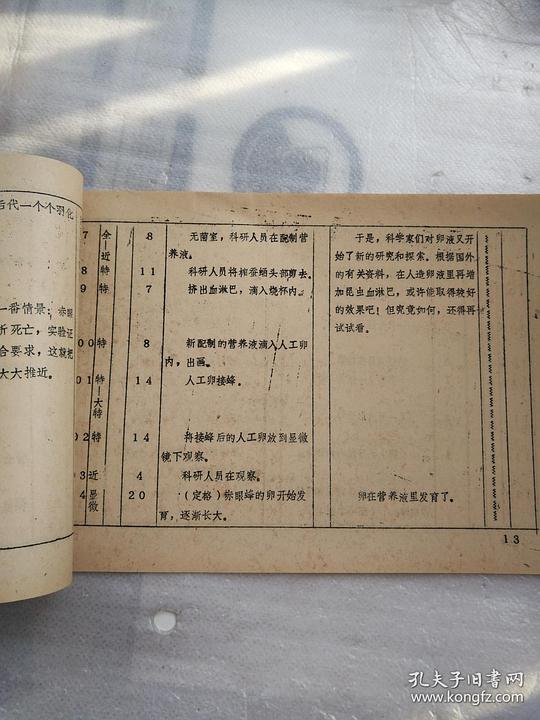 后代一个个羽化
一番情景；赤眼
所死亡，实验证
合要求，这就把
大大推近。
7 全 8 无菌室，科研人员在配制营 于是，科学家们对卵液又开
近 养液。 始了新的研究和探索。根据国外
8 特 11 科研人员将柞蚕蛹头部剪去。 的有关资料，在人造卵液里再增
9 特 7 挤出血淋巴，滴入烧杯内。 加昆虫血淋巴，或许能取得较好
的效果吧！但究竟如何，还得再
试试看。
00 特 8 新配制的营养液滴入人工卵
内，出画。
01 特 14 人工卵接蜂。
大
特
02 特 14 将接蜂后的人工卵放到显微
镜下观察。
03 近 4 科研人员在观察。
4 显 20 （定格）赤眼蜂的卵开始发 卵在营养液里发育了。
微 育，逐渐长大。
13
孔夫子旧书网
www.kongfz.com